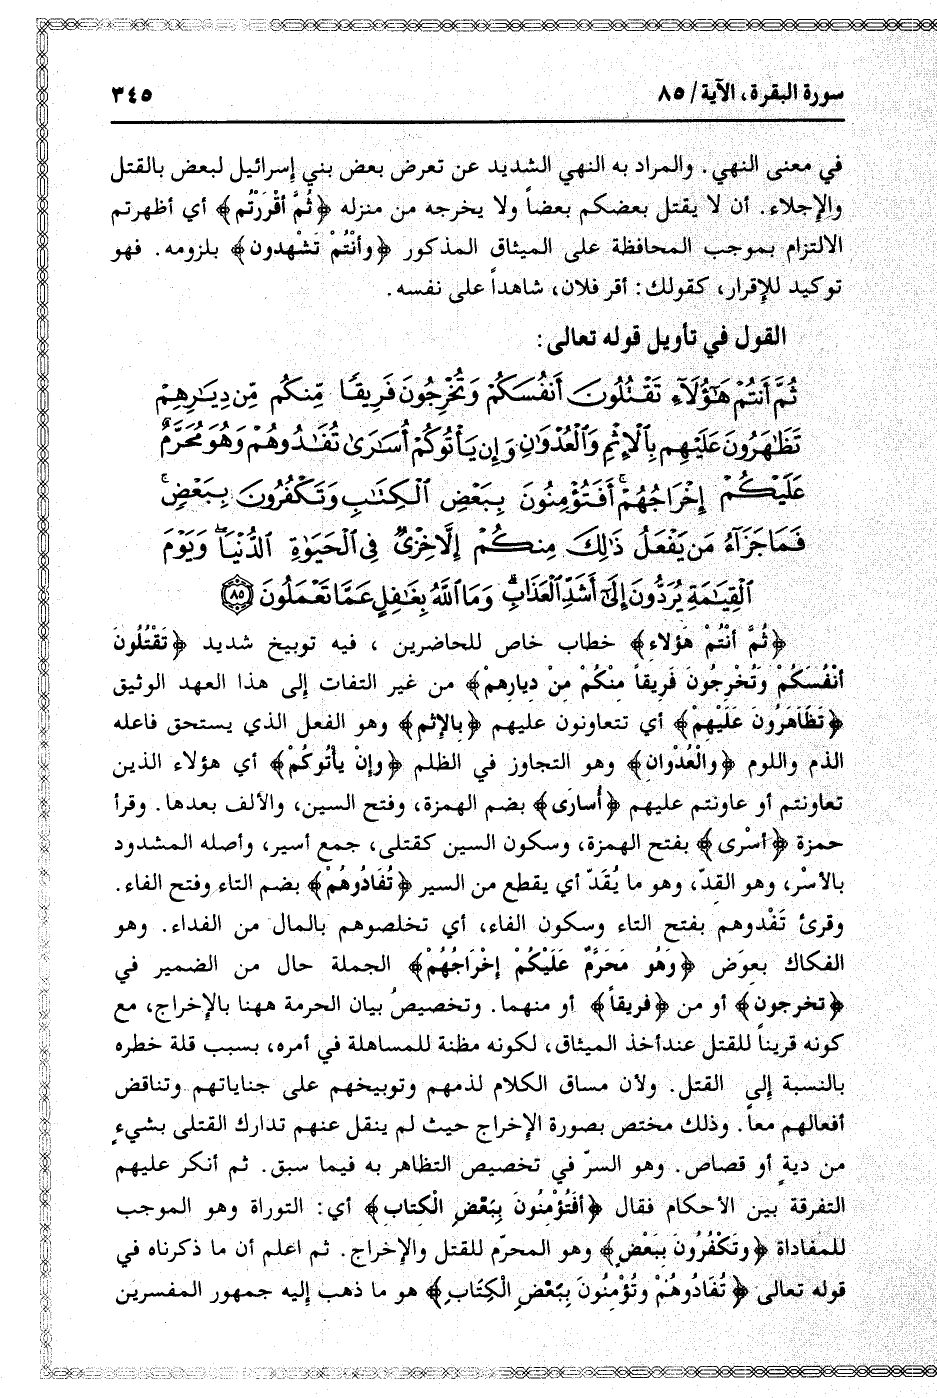 سورة البقرة، الآية/ ٨٥
٣٤٥
في معنى النهي. والمراد به النهي الشديد عن تعرض بعض بني إسرائيل لبعض بالقتل
والإجلاء. أن لا يقتل بعضكم بعضاً ولا يخرجه من منزله ﴿ثُمَّ أقْرَرْتُم﴾ أي أظهرتم
الالتزام بموجب المحافظة على الميثاق المذكور ﴿وأنْتُمْ تَشْهدون﴾ بلزومه. فهو
توكيد للإقرار، كقولك: أقر فلان، شاهداً على نفسه.
القول في تأويل قوله تعالى:
ثُمَّ أَنتُمْ هَٰٓؤُلَآءِ تَقْتُلُونَ أَنفُسَكُمْ وَتُخْرِجُونَ فَرِيقًا مِّنكُم مِّن دِيَٰرِهِمْ
تَظَٰهَرُونَ عَلَيْهِم بِٱلْإِثْمِ وَٱلْعُدْوَٰنِ وَإِن يَأْتُوكُمْ أُسَٰرَىٰ تُفَٰدُوهُمْ وَهُوَ مُحَرَّمٌ
عَلَيْكُمْ إِخْرَاجُهُمْ ۚ أَفَتُؤْمِنُونَ بِبَعْضِ ٱلْكِتَٰبِ وَتَكْفُرُونَ بِبَعْضٍ ۚ
فَمَا جَزَآءُ مَن يَفْعَلُ ذَٰلِكَ مِنكُمْ إِلَّا خِزْىٌ فِى ٱلْحَيَوٰةِ ٱلدُّنْيَا ۖ وَيَوْمَ
ٱلْقِيَٰمَةِ يُرَدُّونَ إِلَىٰٓ أَشَدِّ ٱلْعَذَابِ ۗ وَمَا ٱللَّهُ بِغَٰفِلٍ عَمَّا تَعْمَلُونَ ٨٥
﴿ثُمَّ أنْتُمْ هَؤلاءِ﴾ خطاب خاص للحاضرين ، فيه توبيخ شديد ﴿تَقْتُلُونَ
أنْفُسَكُمْ وَتُخْرِجُونَ فَرِيقاً مِنْكُمْ مِنْ دِيارِهِمْ﴾ من غير التفات إلى هذا العهد الوثيق
﴿تَظَاهَرُونَ عَلَيْهِمْ﴾ أي تتعاونون عليهم ﴿بِالإثم﴾ وهو الفعل الذي يستحق فاعله
الذم واللوم ﴿والْعُدْوانِ﴾ وهو التجاوز في الظلم ﴿وإنْ يأتُوكُمْ﴾ أي هؤلاء الذين
تعاونتم أو عاونتم عليهم ﴿أُسارَى﴾ بضم الهمزة، وفتح السين، والألف بعدها. وقرأ
حمزة ﴿أسْرى﴾ بفتح الهمزة، وسكون السين كقتلى، جمع أسير، وأصله المشدود
بالأسْر، وهو القِدّ، وهو ما يُقَدّ أي يقطع من السير ﴿تُفَادُوهُمْ﴾ بضم التاء وفتح الفاء.
وقرئ تَفْدوهم بفتح التاء وسكون الفاء، أي تخلصوهم بالمال من الفداء. وهو
الفكاك بعوض ﴿وَهُو مَحَرَّمٌ عَلَيْكُمْ إخْرَاجُهُمْ﴾ الجملة حال من الضمير في
﴿تخرجون﴾ أو من ﴿فريقاً﴾ أو منهما. وتخصيصُ بيان الحرمة ههنا بالإخراج، مع
كونه قريناً للقتل عندأخذ الميثاق، لكونه مظنة للمساهلة في أمره، بسبب قلة خطره
بالنسبة إلى القتل. ولأن مساق الكلام لذمهم وتوبيخهم على جناياتهم وتناقض
أفعالهم معاً. وذلك مختص بصورة الإخراج حيث لم ينقل عنهم تدارك القتلى بشيءٍ
من ديةٍ أو قصاص. وهو السرّ في تخصيص التظاهر به فيما سبق. ثم أنكر عليهم
التفرقة بين الأحكام فقال ﴿أفَتُؤْمِنُونَ بِبَعْضِ الْكِتاب﴾ أي: التوراة وهو الموجب
للمفاداة ﴿وتَكْفُرُونَ بِبَعْضٍ﴾ وهو المحرّم للقتل والإخراج. ثم اعلم أن ما ذكرناه في
قوله تعالى ﴿تُفَادُوهُمْ وتُؤْمِنُونَ بِبَعْضِ الْكِتَابِ﴾ هو ما ذهب إليه جمهور المفسرين